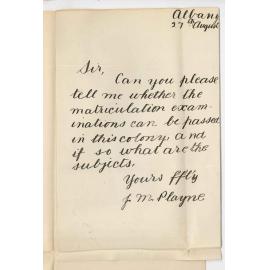 Albany
27th August
Sir,
Can you please
tell me whether the
matriculation exam-
inations can be passed
in this colony, and
if so what are the
subjects.
Yours ffly
J M. Playne